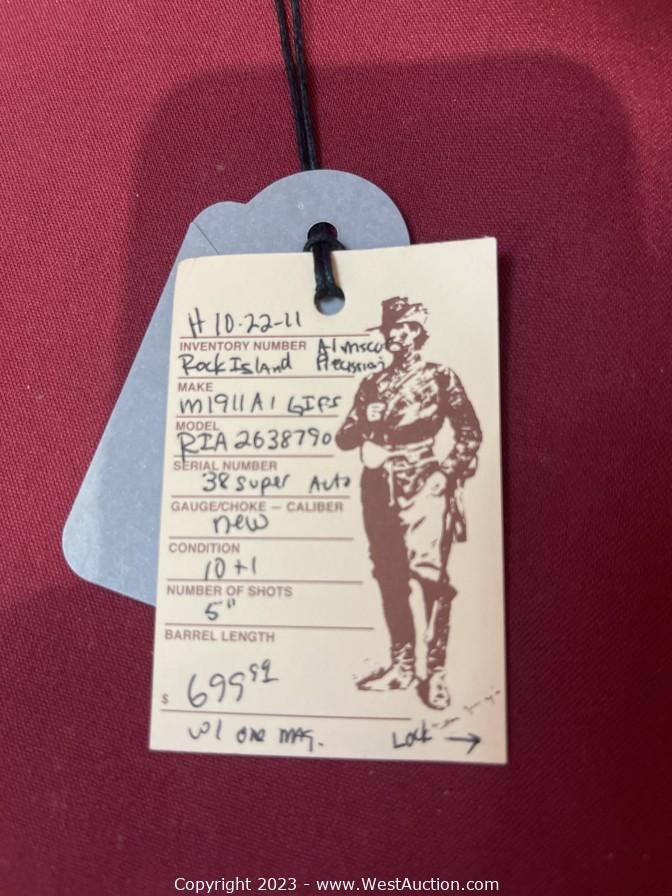 H 10-22-11
INVENTORY NUMBER
Rock Island
MAKE
M1911A1
MODEL
RIA 2638790
SERIAL NUMBER
38 Super Auto
GAUGE/CHOKE — CALIBER
new
CONDITION
10+1
NUMBER OF SHOTS
5"
BARREL LENGTH
$ 699 99
w/ one MAG.
Lock →
Copyright 2023 - www.WestAuction.com